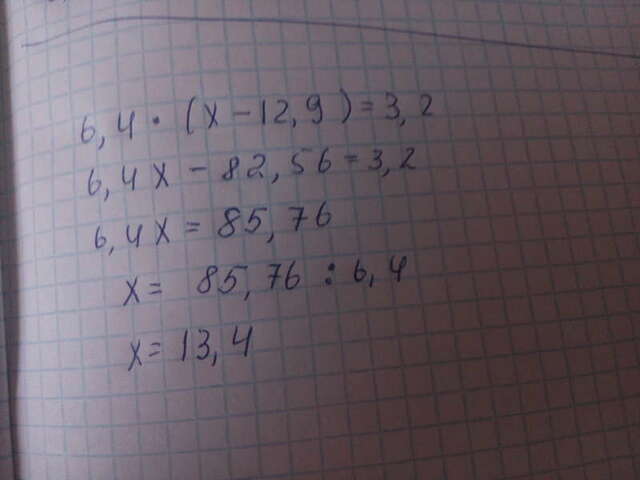 6,4 · (x - 12,9) = 3,2
6,4x - 82,56 = 3,2
6,4x = 85,76
x = 85,76 : 6,4
x = 13,4